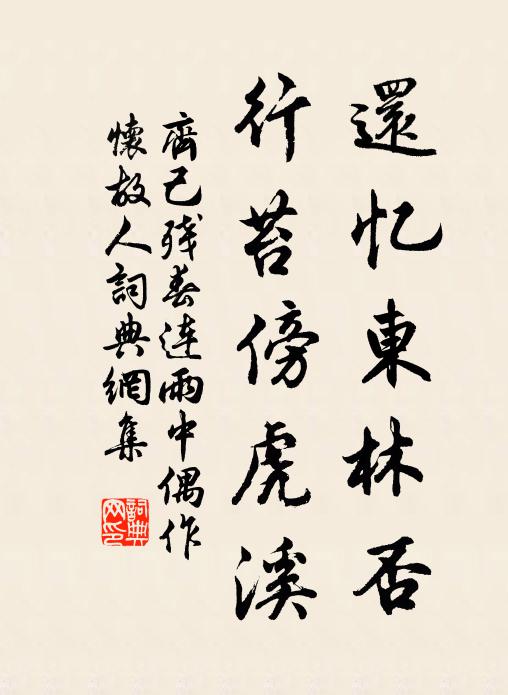 還忆東林否
行苔傍虎溪
齊己残春连雨中偶作
懷故人詞典網集
詞典
网印